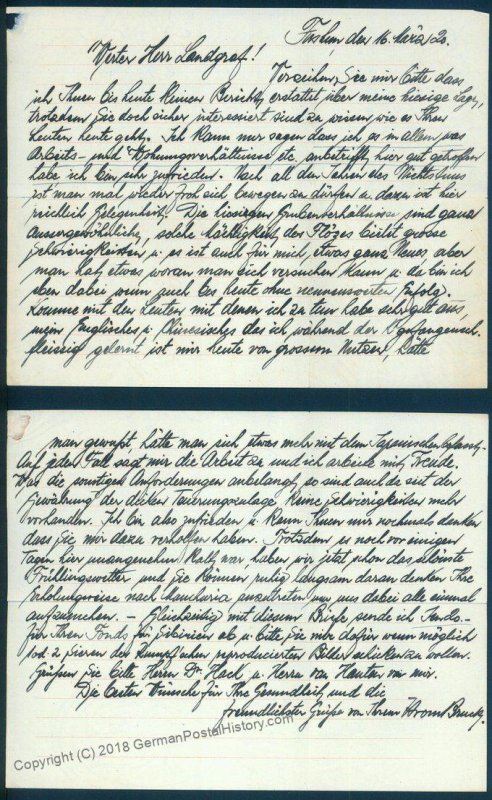 Fushun den 16. März 20.
Werter Herr Landgraf!
Verzeihen Sie mir bitte dass
ich Ihnen bis heute keinen Bericht erstattet über meine hiesige Lage,
trotzdem Sie doch sicher interessiert sind zu wissen wie es Ihren
Leuten heute geht. Ich kann nur sagen dass ich es in allem was
Arbeits- und Wohnungsverhältnisse etc. anbetrifft hier gut getroffen
habe ich bin sehr zufrieden. Nach all den Jahren des Nichtstuns
ist man mal wieder froh sich bewegen zu dürfen u. dazu ist hier
reichlich Gelegenheit. Die hiesigen Grubenverhältnisse sind ganz
aussergewöhnliche, solche Mächtigkeit des Flözes bietet grosse
Schwierigkeiten u. es ist auch für mich etwas ganz Neues, aber
man hat etwas woran man sich versuchen kann u. da bin ich
eben dabei wenn auch bis heute ohne nennenswerten Erfolg.
Komme mit den Leuten mit denen ich zu tun habe sehr gut aus,
mein Englisches u. Chinesisches das ich während der Gefangensch.
fleissig gelernt ist mir heute von grossem Nutzen, hätte
man gewusst hätte man sich etwas mehr mit dem Japanischen befasst.
Auf jeden Fall sagt mir die Arbeit zu und ich arbeite mit Freude.
Was die sonstigen Anforderungen anbelangt so sind auch da seit der
Gewährung der Teuerungszulage keine Schwierigkeiten mehr
vorhanden. Ich bin also zufrieden u. kann Ihnen nur nochmals danken
dass Sie mir dazu verholfen haben. Trotzdem es noch vor einigen
Tagen hier unangenehm kalt war haben wir jetzt schon das schönste
Frühlingswetter und Sie können ruhig langsam daran denken Ihre
Erholungsreise nach Manchuria anzutreten um uns dabei alle einmal
aufzusuchen. - Gleichzeitig mit diesem Briefe sende ich
für Ihren Fonds für Sibirien ab u. bitte Sie mir dafür wenn möglich
1 od. 2 Serien der reproducierten Bilder schicken zu wollen.
Grüssen Sie bitte Herrn Dr. Hack u. Herrn van Hauten von mir.
Die besten Wünsche für Ihre Gesundheit und die
freundlichsten Grüsse von Ihrem
Copyright (C) 2018 GermanPostalHistory.com